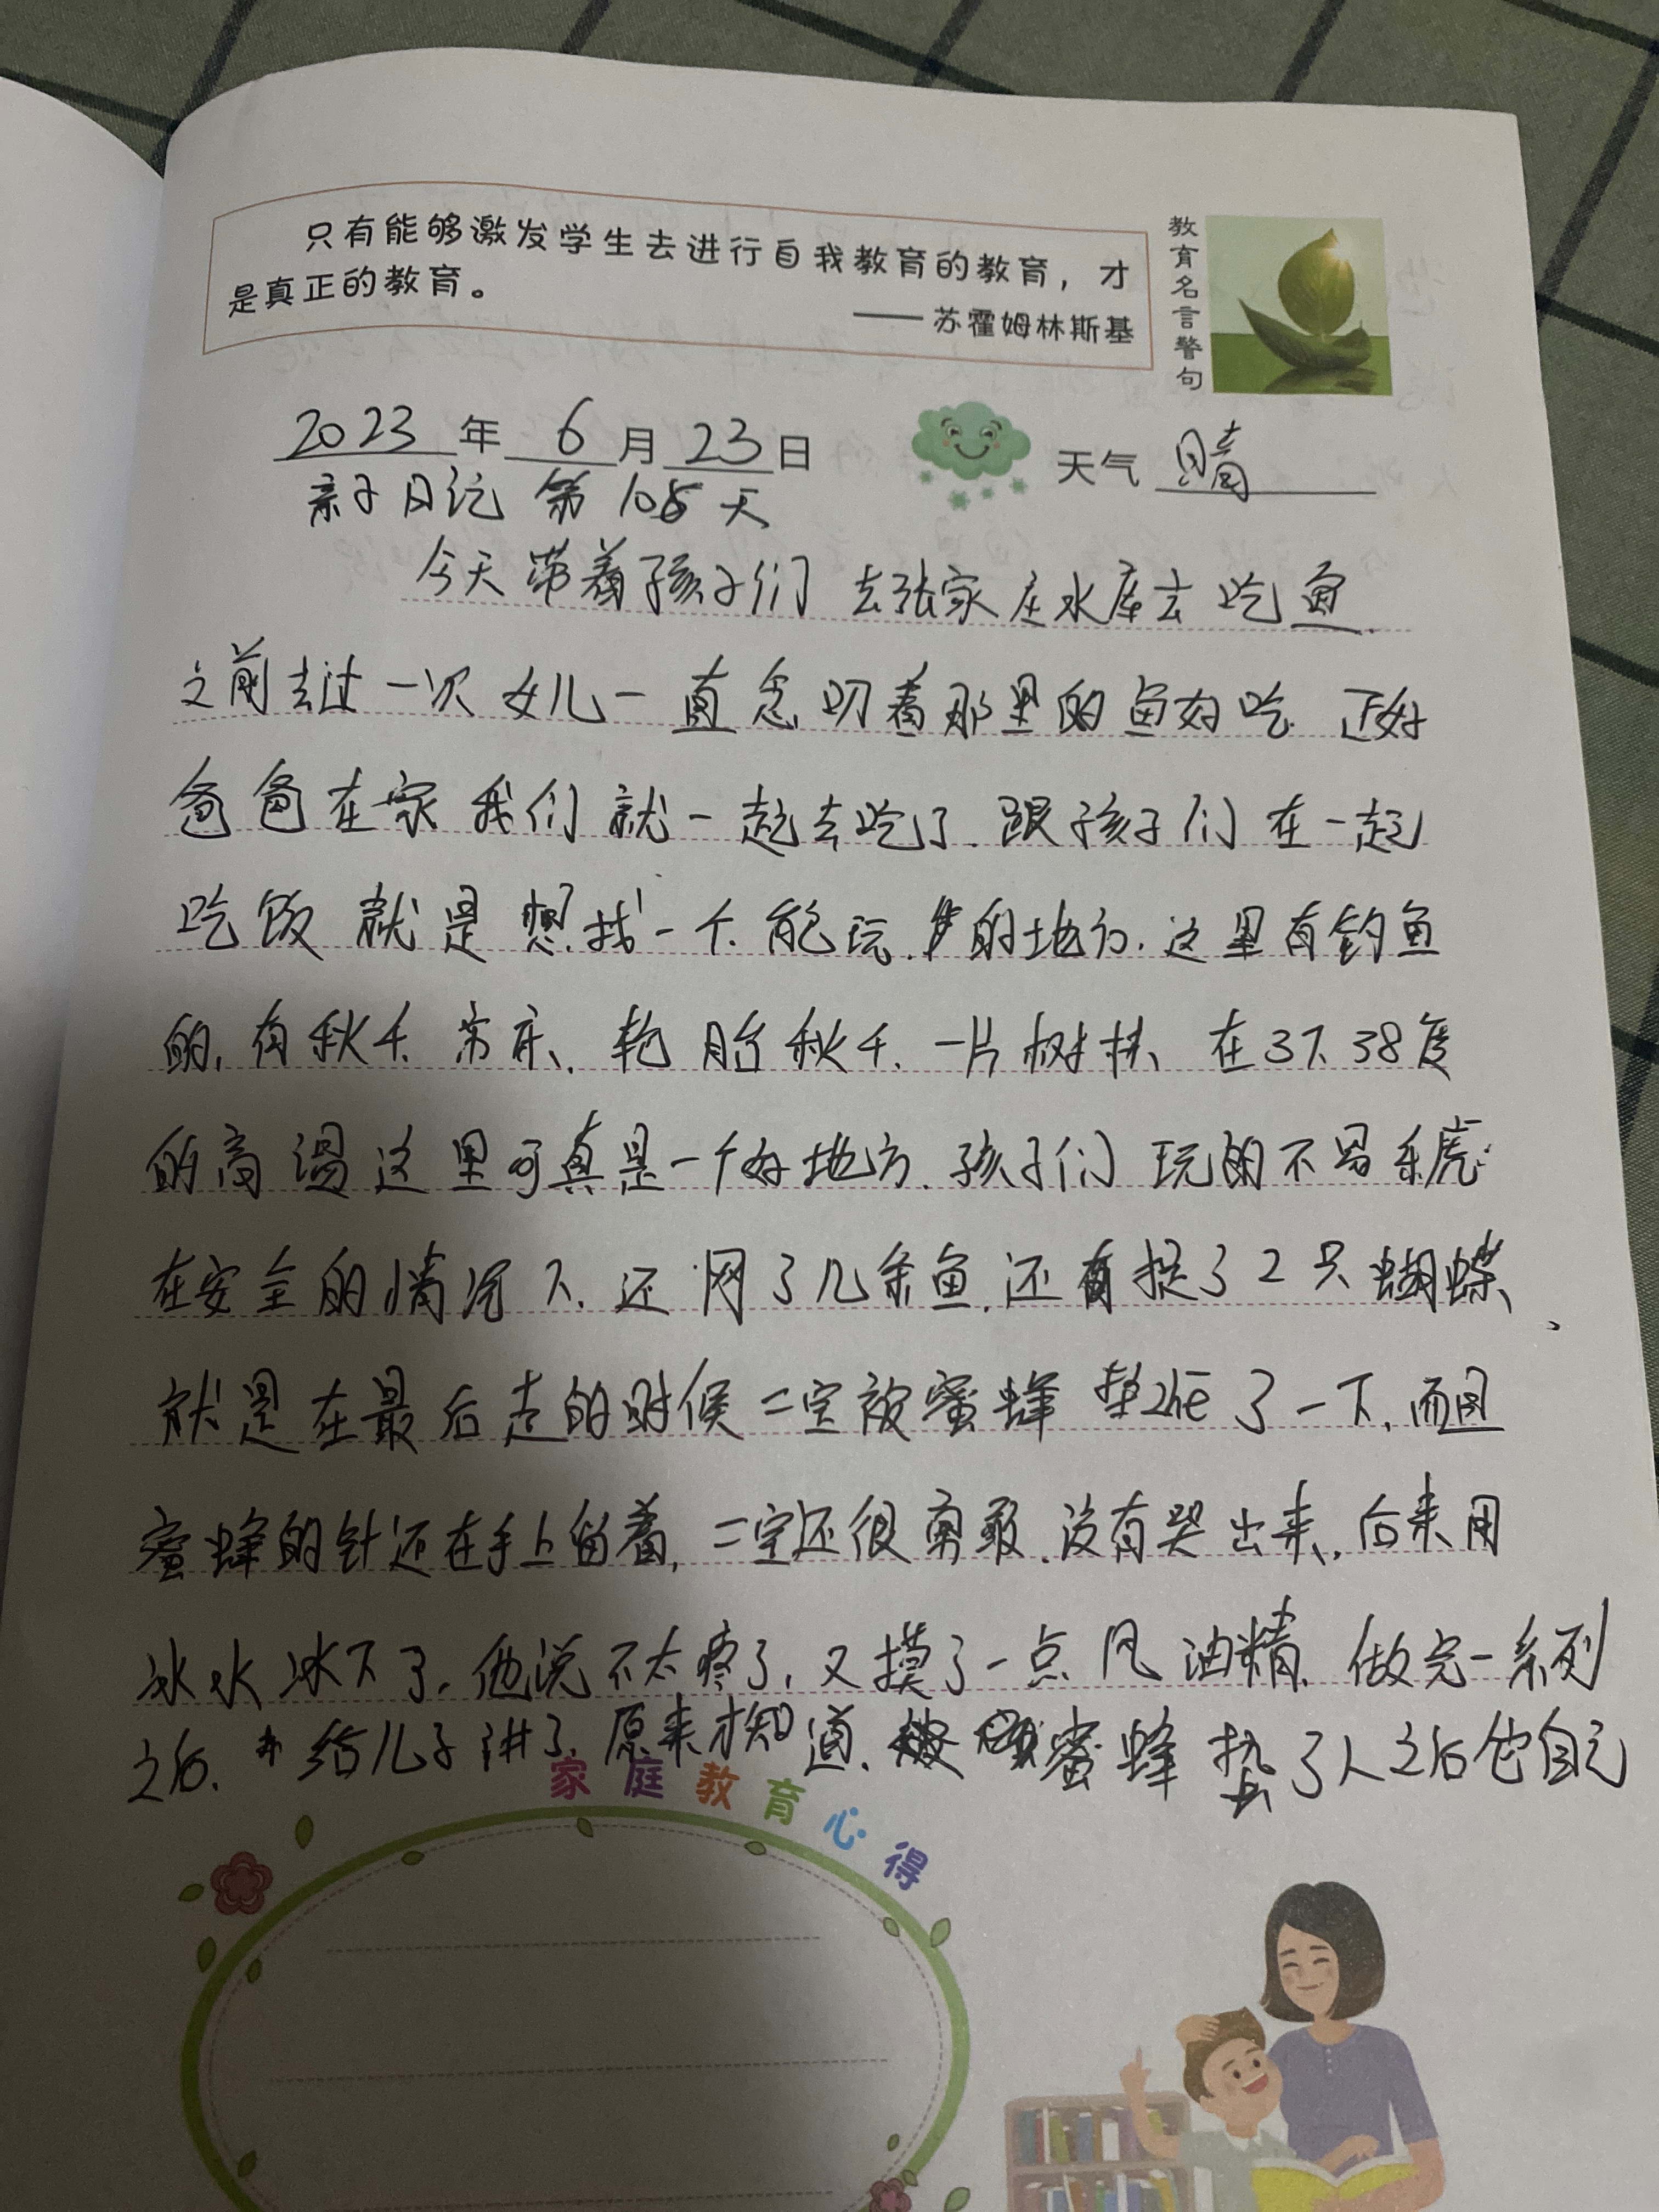 只有能够激发学生去进行自我教育的教育，才
是真正的教育。
——苏霍姆林斯基
教育名言警句
2023年6月23日
天气 晴
亲子日记 第105天
今天带着孩子们去张家庄水库去吃鱼.
之前去过一次女儿一直念叨着那里的鱼好吃.正好
爸爸在家我们就一起去吃了.跟孩子们在一起
吃饭就是想找一个能玩的地方.这里有钓鱼
的,有秋千.吊床、轮胎秋千.一片树林、在37.38度
的高温这里可真是一个好地方.孩子们玩的不易乐乎
在安全的情况下.还网了几条鱼.还有捉了2只蝴蝶、
就是在最后走的时候二宝被蜜蜂蛰zhē了一下,而且
蜜蜂的针还在手上留着,二宝还很勇敢.没有哭出来.后来用
冰水冰下了.他说不太疼了,又摸了一点风油精.做完一系列
之后.给儿子讲了.原来才知道.蜜蜂蛰了人之后它自己
家庭教育心得